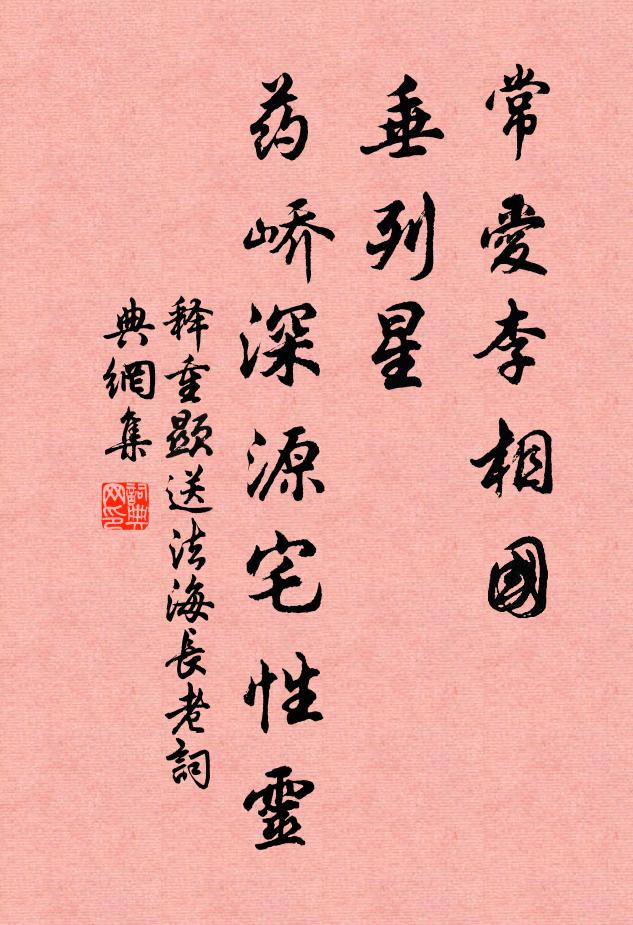 常愛李相國
垂列星
药峤深源宅性靈
释重顯送法海長老詞
典網集
詞典
网印